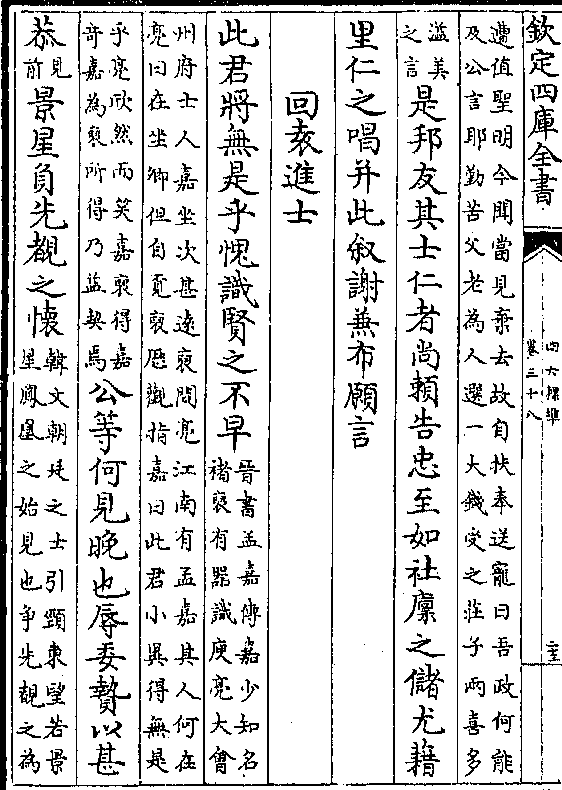 欽定四庫全書
四六標準
卷三十八
遭值聖明今聞當見棄去故自扶奉送寵曰吾政何能
及公言耶勤苦父老為人選一大錢受之莊子兩喜多
溢美之言是邦友其士仁者尚賴告忠至如社廩之儲尤藉
里仁之唱并此叙謝兼布願言
回袁進士
此君將無是乎愧識賢之不早晉書孟嘉傳嘉少知名
禇裒有器識庾亮大會
州府士人嘉坐次甚遠裒問亮江南有孟嘉其人何在
亮曰在坐卿但自覓裒歷觀指嘉曰此君小異得無是
乎亮欣然而笑嘉裒得嘉
竒嘉為裒所得乃益契焉公等何見晚也辱委贄以甚
恭見前景星負先覩之懷韓文朝廷之士引頸東望若景
星鳳凰之始見也爭先覩之為